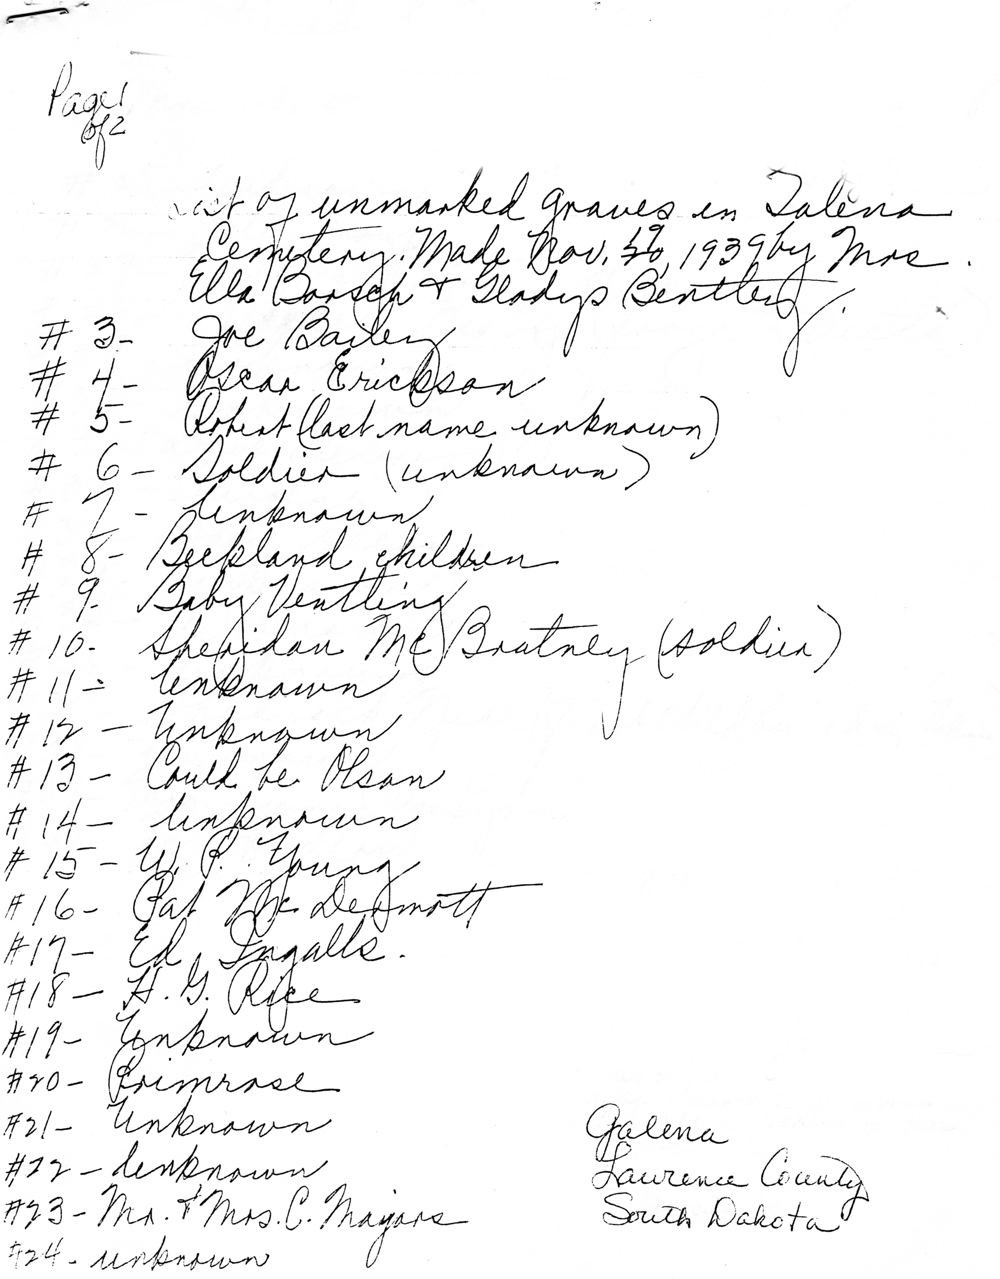 Page 1
of 2
List of unmarked graves in Galena
Cemetery. Made Nov. 19, 1939 by Mrs.
Ella Borsch & Gladys Bentley.
# 3- Joe Bailey
# 4- Oscar Erickson
# 5- Robert (last name unknown)
# 6- Soldier (unknown)
# 7- Unknown
# 8- Beckland children
# 9- Baby Ventling
# 10- Sheridan McBratney (soldier)
# 11- Unknown
# 12- Unknown
# 13- Could be Olson
# 14- Unknown
# 15- W. P. Young
# 16- Pat McDermott
#17- Ed. Ingalls.
#18- H. G. Rice
#19- Unknown
#20- Primrose
#21- Unknown
#22- Unknown
#23- Mr. & Mrs. C. Mayors
#24- unknown
Galena
Lawrence County
South Dakota